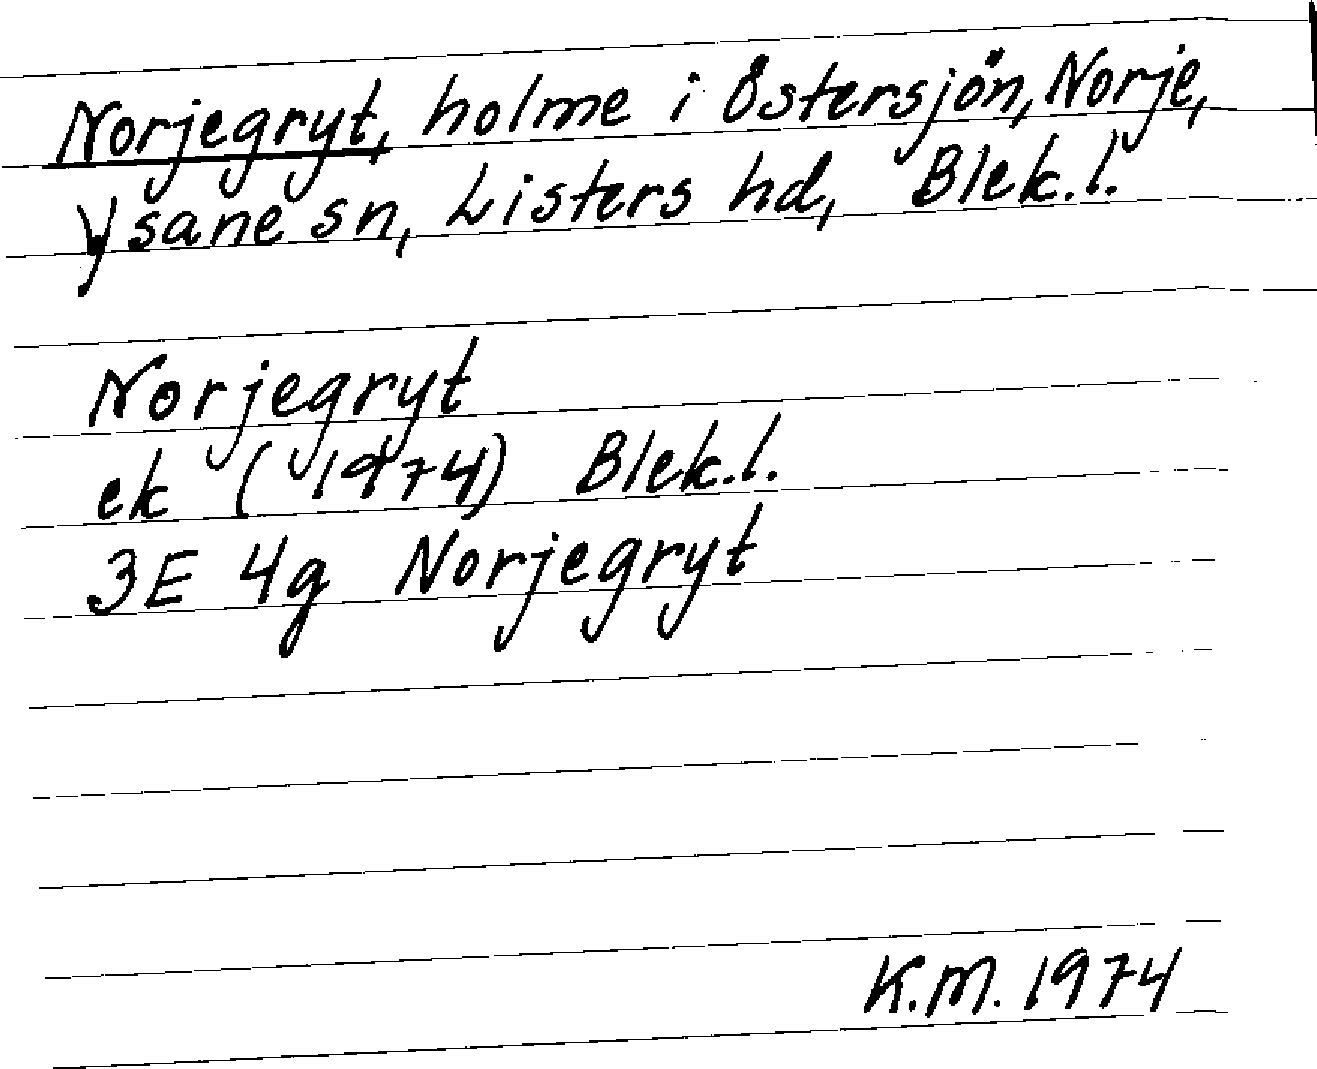 Norjegryt, holme i Östersjön, Norje,
Ysane sn, Listers hd, Blek.l.
Norjegryt
ek (1974) Blek.l.
3E 4g Norjegryt
K.M. 1974